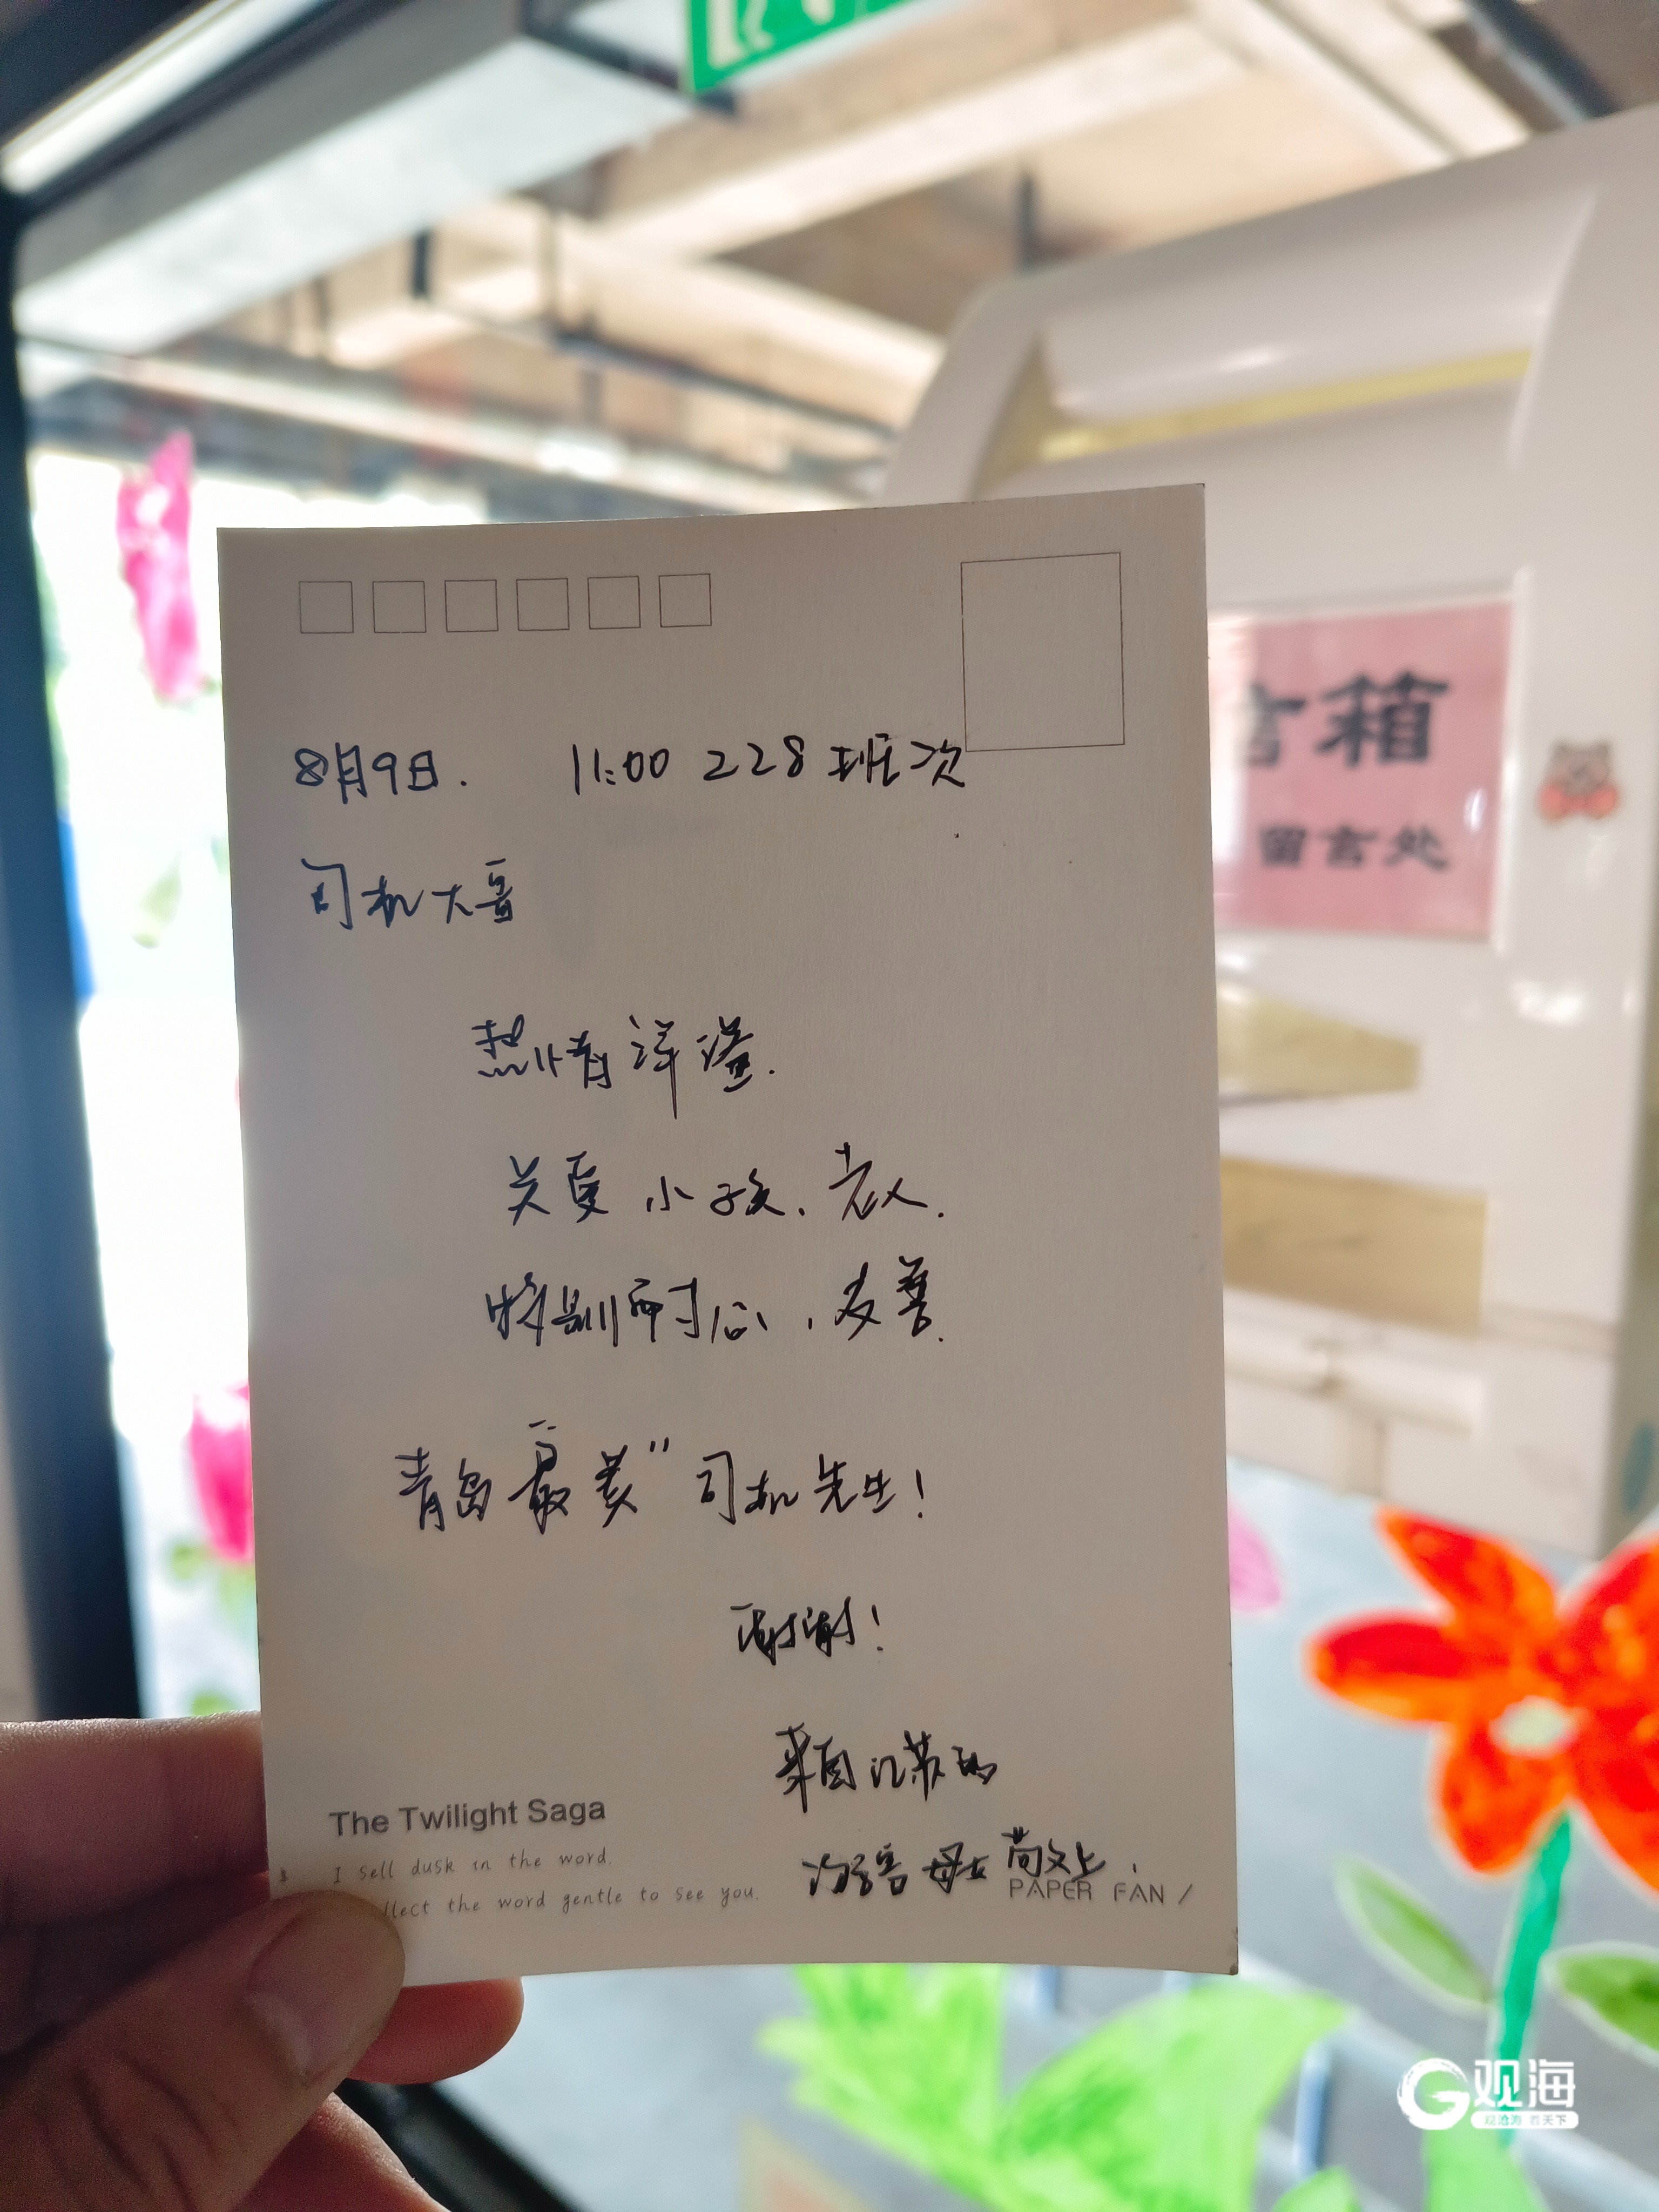 箱
留言处
8月9日. 11:00 228 班次
司机大哥
热情洋溢.
关爱小孩、老人.
特别耐心、友善.
青岛最美"司机先生!
谢谢!
来自江苏的
游客母女敬上.
The Twilight Saga
I sell dusk in the word.
llect the word gentle to see you.
PAPER FAN /
观海
观沧海 看天下